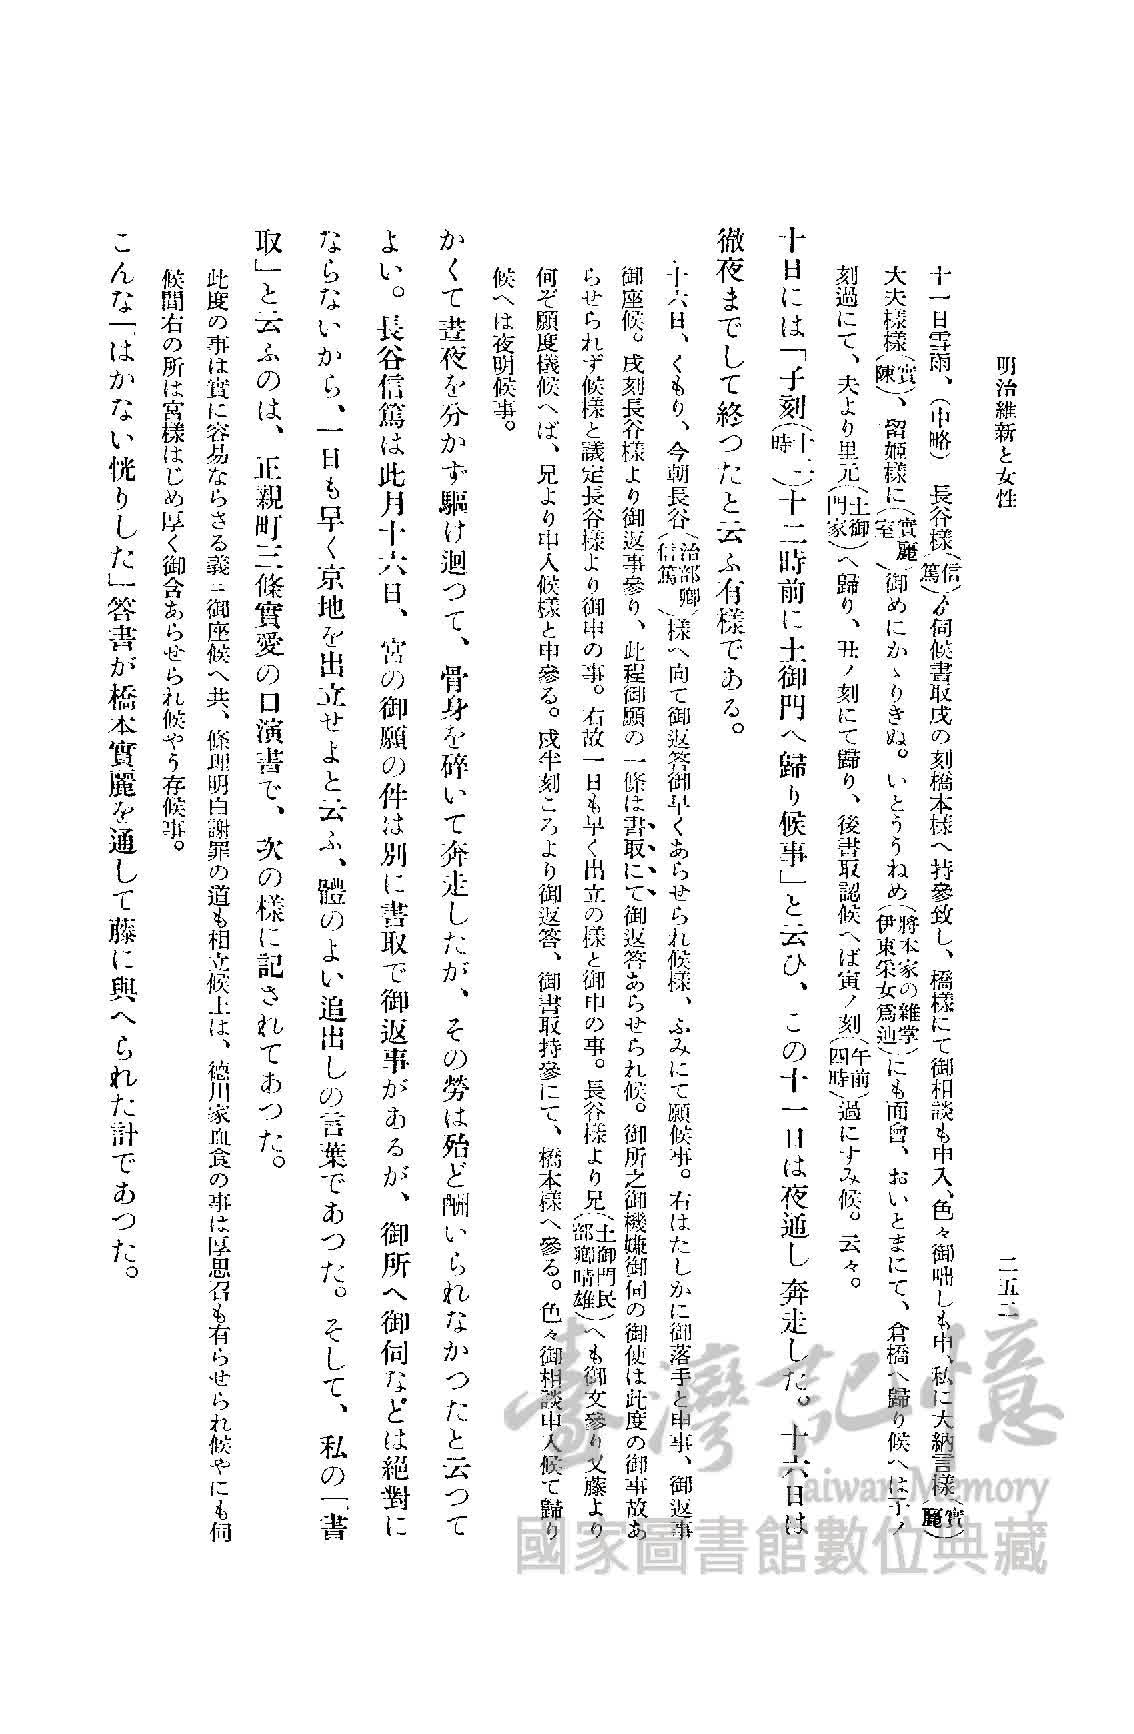 明治維新と女性
二五二
十一日雪雨、(中略) 長谷樣(信篤)ゟ伺候書取戌の刻橋本樣へ持參致し、橋樣にて御相談も申入、色々御咄しも申、私に大納言樣(實麗)
大夫樣樣(實陳)、留姬樣に(實麗室)御めにかゝりきぬ。いとううねめ(將本家の雜掌伊東采女爲迪)にも面會、おいとまにて、倉橋へ歸り候へは子ノ
刻過にて、夫より里元(土御門家)へ歸り、丑ノ刻にて歸り、後書取認候へば寅ノ刻(午前四時)過にすみ候。云々。
十日には「子刻(十二時)十二時前に土御門へ歸り候事」と云ひ、この十一日は夜通し奔走した。十六日は
徹夜までして終つたと云ふ有樣である。
十六日、くもり、今朝長谷(治部卿信篤)樣へ向て御返答御早くあらせられ候樣、ふみにて願候事。右はたしかに御落手と申事、御返事
御座候。戌刻長谷樣より御返事參り、此程御願の一條は書取にて御返答あらせられ候。御所之御機嫌御伺の御使は此度の御事故あ
らせられず候樣と議定長谷樣より御申の事。右故一日も早く出立の樣と御申の事。長谷樣より兄(土御門民部卿晴雄)へも御文參り又藤より
何ぞ願度儀候へば、兄より申入候樣と申參る。戌半刻ころより御返答、御書取持參にて、橋本樣へ參る。色々御相談申入候て歸り
候へは夜明候事。
かくて晝夜を分かず驅け𢌞つて、骨身を碎いて奔走したが、その勞は殆ど酬いられなかつたと云つて
よい。長谷信篤は此月十六日、宮の御願の件は別に書取で御返事があるが、御所へ御伺などは絕對に
ならないから、一日も早く京地を出立せよと云ふ、體のよい追出しの言葉であつた。そして、私の「書
取」と云ふのは、正親町三條實愛の口演書で、次の樣に記されてあつた。
此度の事は實に容易ならさる義ニ御座候へ共、條理明白謝罪の道も相立候上は、德川家血食の事は厚思召も有らせられ候やにも伺
候間右の所は宮樣はじめ厚く御含あらせられ候やう存候事。
こんな「はかない恍りした」答書が橋本實麗を通して藤に與へられた計であつた。
臺灣記憶
Taiwan Memory
國家圖書館數位典藏